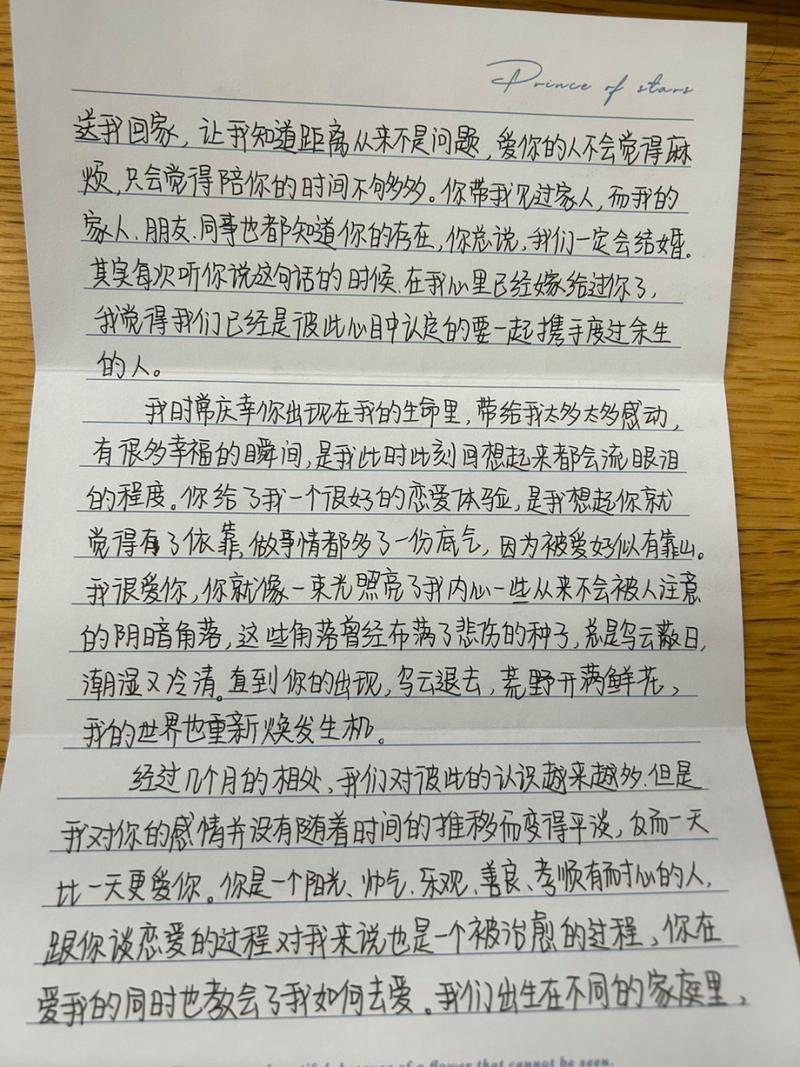 Prince of stars
送我回家，让我知道距离从来不是问题，爱你的人不会觉得麻
烦，只会觉得陪你的时间不够多多。你带我见过家人，而我的
家人、朋友、同事也都知道你的存在，你总说，我们一定会结婚。
其实每次听你说这句话的时候、在我心里已经嫁给过你了，
我觉得我们已经是彼此心目中认定的要一起携手度过余生
的人。
我时常庆幸你出现在我的生命里，带给我太多太多感动，
有很多幸福的瞬间，是我此时此刻回想起来都会流眼泪
的程度。你给了我一个很好的恋爱体验，是我想起你就
觉得有了依靠，做事情都多了一份底气，因为被爱好似有靠山。
我很爱你，你就像一束光照亮了我内心一些从来不会被人注意
的阴暗角落，这些角落曾经布满了悲伤的种子，总是乌云蔽日，
潮湿又冷清。直到你的出现，乌云退去，荒野开满鲜花，
我的世界也重新焕发生机。
经过几个月的相处、我们对彼此的认识越来越多．但是
我对你的感情并没有随着时间的推移而变得平淡，反而一天
比一天更爱你。你是一个阳光、帅气、乐观、善良、孝顺有耐心的人，
跟你谈恋爱的过程对我来说也是一个被治愈的过程，你在
爱我的同时也教会了我如何去爱。我们出生在不同的家庭里，
because of a flower that cannot be seen.